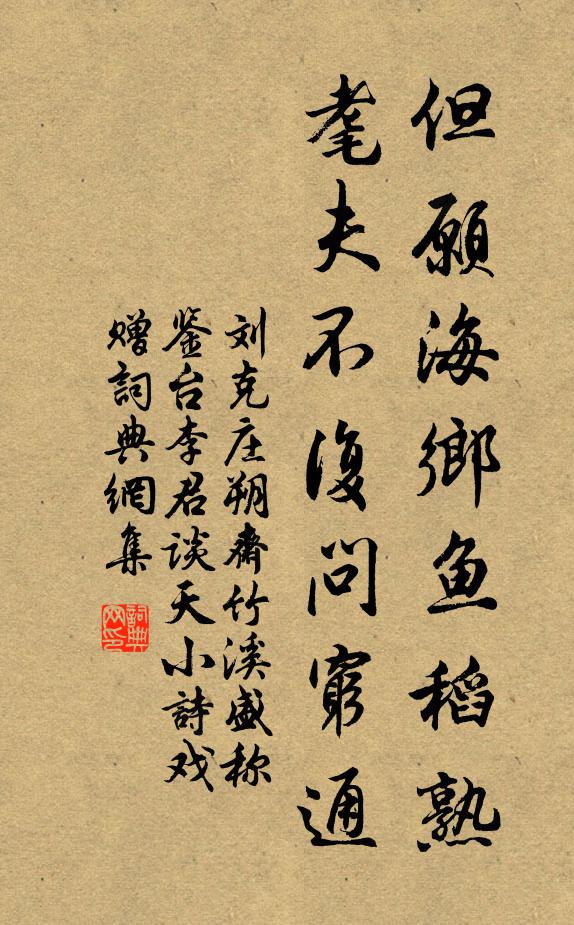 但願海鄉鱼稻熟
耄夫不復問窮通
刘克庄朔齋竹溪盛称
鉴台李君谈天小詩戏
赠詞典網集
詞典网印